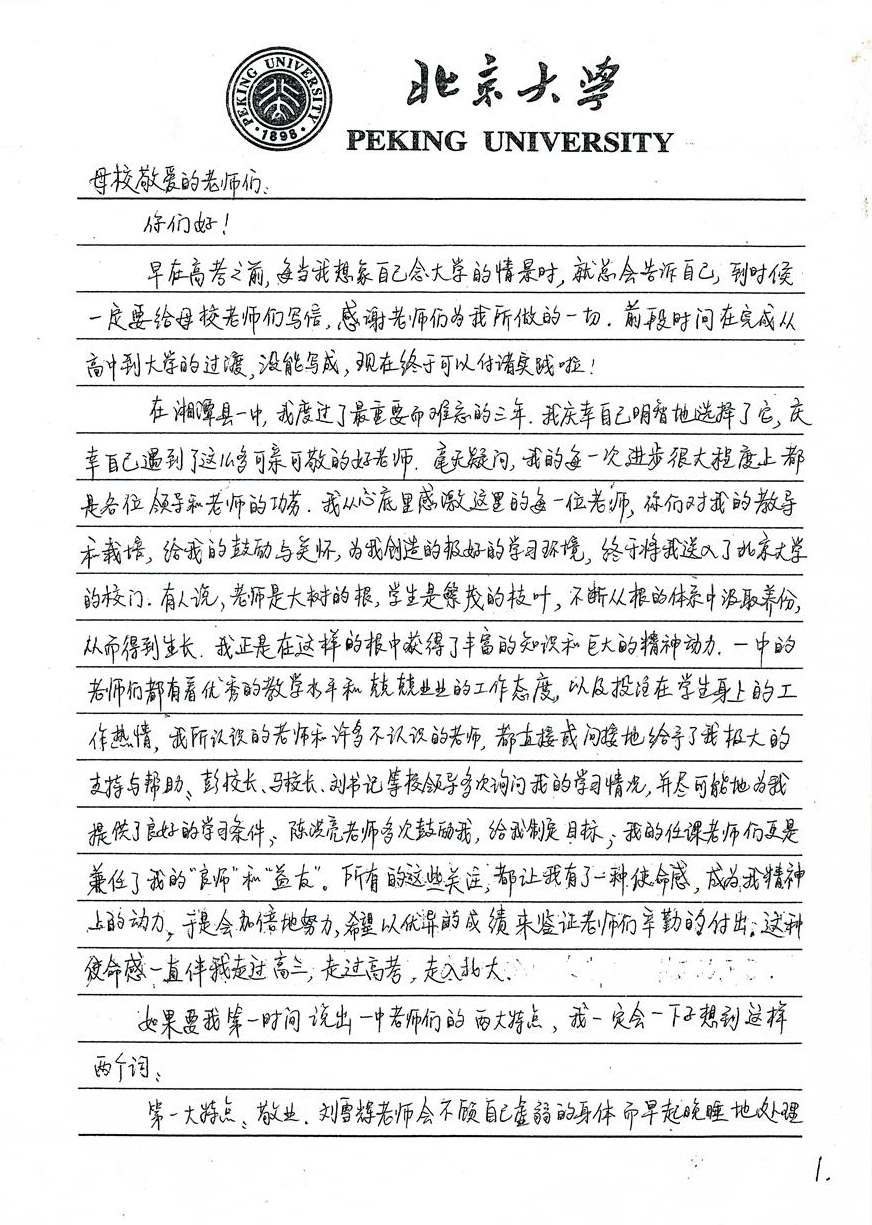 PEKING UNIVERSITY
1898
北京大学
PEKING UNIVERSITY
母校敬爱的老师们:
你们好!
早在高考之前,每当我想象自己念大学的情景时,就总会告诉自己,到时候
一定要给母校老师们写信,感谢老师们为我所做的一切.前段时间在完成从
高中到大学的过渡,没能写成,现在终于可以付诸实践啦!
在湘潭县一中,我度过了最重要而难忘的三年.我庆幸自己明智地选择了它,庆
幸自己遇到了这么多可亲可敬的好老师.毫无疑问,我的每一次进步很大程度上都
是各位领导和老师的功劳.我从心底里感激这里的每一位老师,你们对我的教导
和栽培,给我的鼓励与关怀,为我创造的极好的学习环境,终于将我送入了北京大学
的校门.有人说,老师是大树的根,学生是繁茂的枝叶,不断从根的体系中汲取养份,
从而得到生长.我正是在这样的根中获得了丰富的知识和巨大的精神动力.一中的
老师们都有着优秀的教学水平和兢兢业业的工作态度,以及投注在学生身上的工
作热情,我所认识的老师和许多不认识的老师,都直接或间接地给予了我极大的
支持与帮助、彭校长、马校长、刘书记等校领导多次询问我的学习情况,并尽可能地为我
提供了良好的学习条件;陈洪亮老师多次鼓励我,给我制定目标;我的任课老师们更是
兼任了我的“良师”和“益友”。所有的这些关注,都让我有了一种使命感,成为我精神
上的动力,于是会加倍地努力,希望以优异的成绩来鉴证老师们辛勤的付出。这种
使命感一直伴我走过高三,走过高考,走入北大.
如果要我第一时间说出一中老师们的两大特点,我一定会一下子想到这样
两个词:
第一大特点、敬业.刘雪辉老师会不顾自己虚弱的身体而早起晚睡地处理
1.